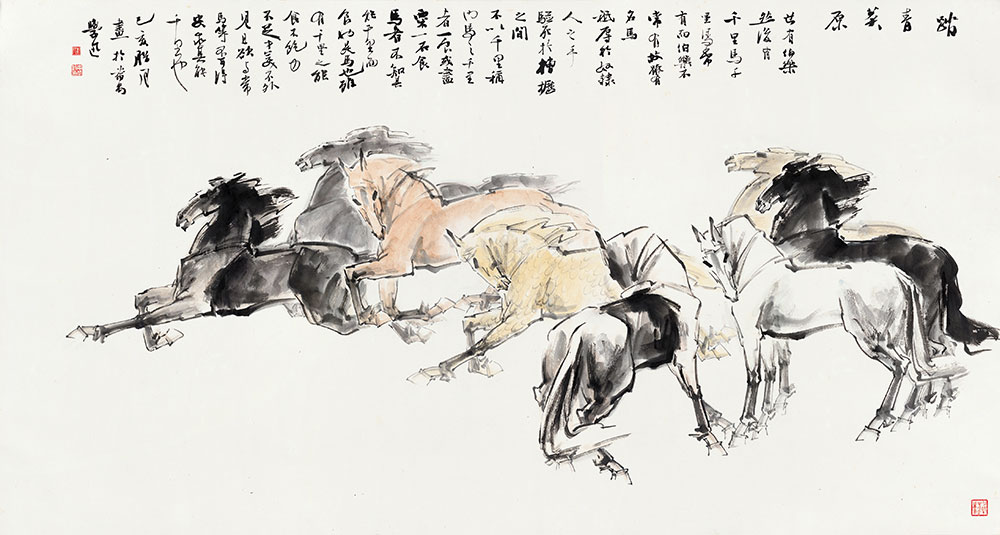 踏青原
世有伯樂
然後有
千里馬千
里馬常
有而伯樂不
常有故雖有
名馬
祇辱於奴隸
人之手
駢死於槽櫪
之間
不以千里稱
也馬之千里
者一食或盡
粟一石食
馬者不知其
能千里而
食也是馬也雖
有千里之能
食不飽力
不足才美不外
見且欲與常
馬等不可得
安求其能
千里也
己亥臘月
畫於